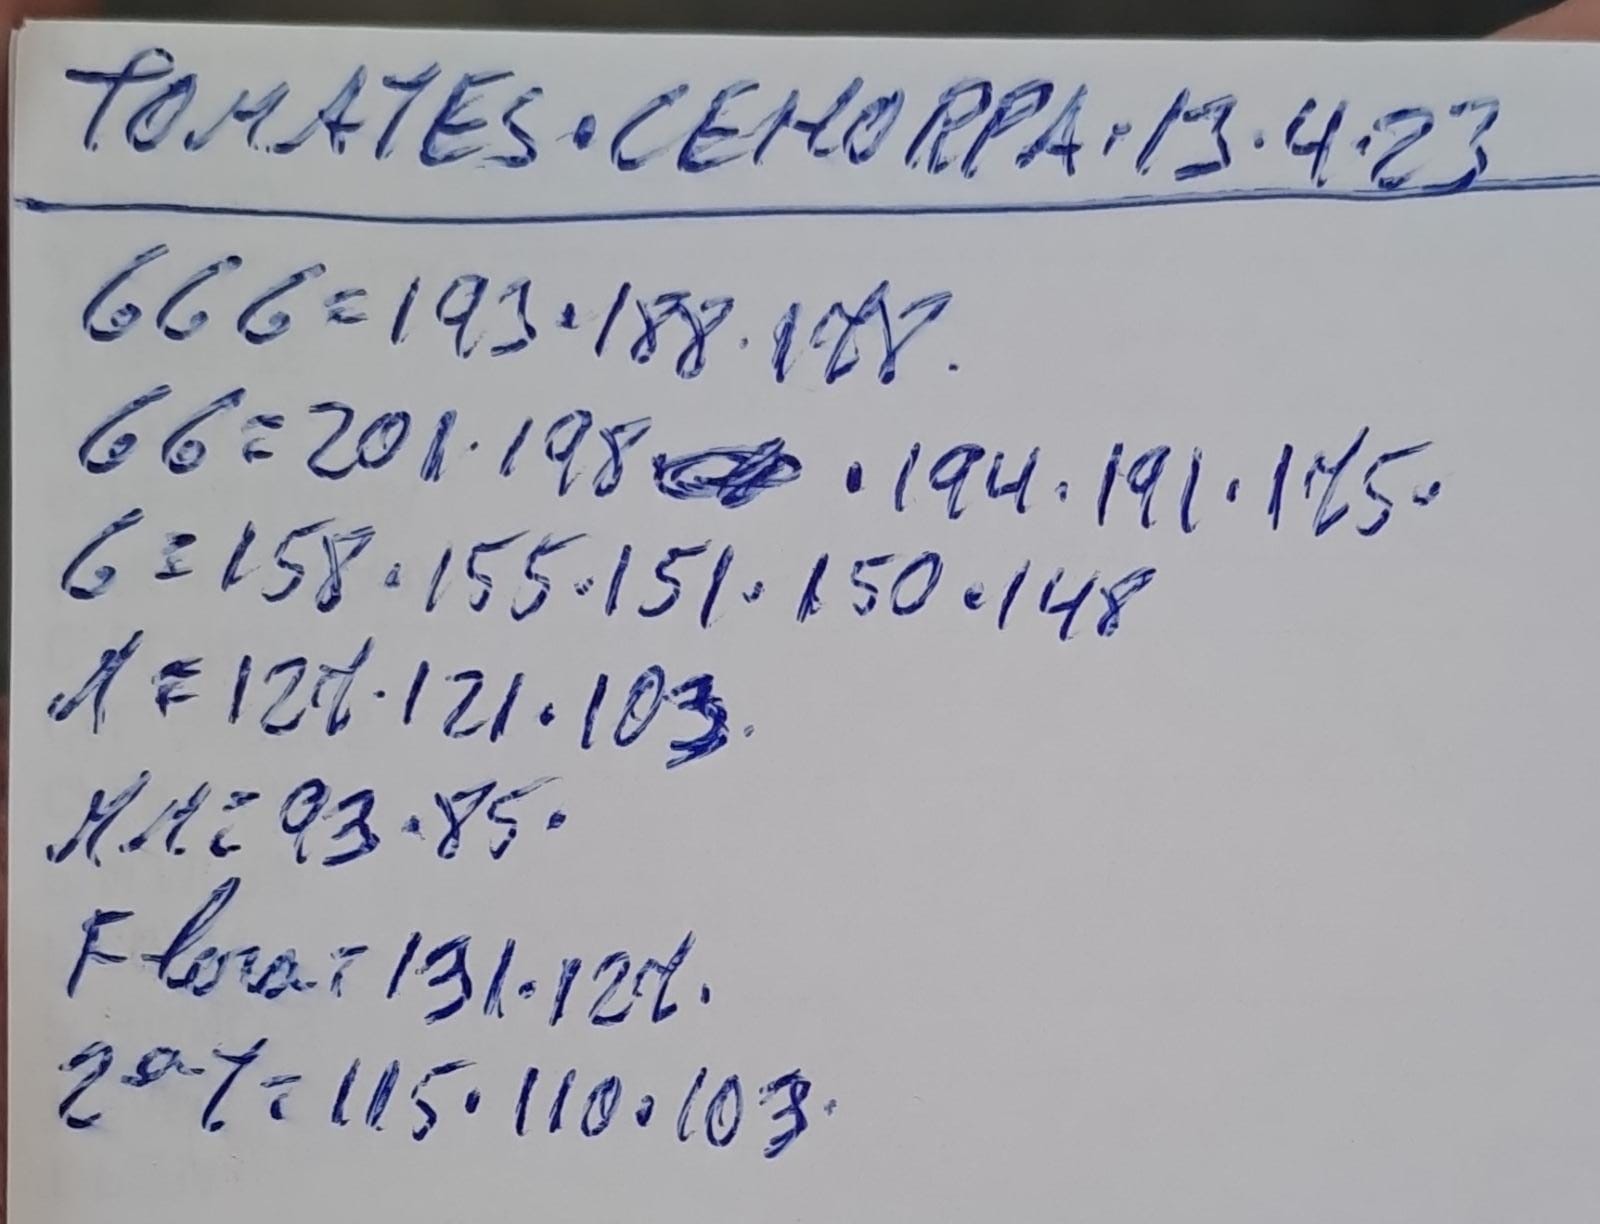 TOMATES.CEHORPA.13.4.23
GGG=193.188.178.
GG=201.198 .194.191.175.
G=158.155.151.150.148
M=127.121.103.
MM=93.85.
Flora=131.127.
2ª-T=115.110.103.